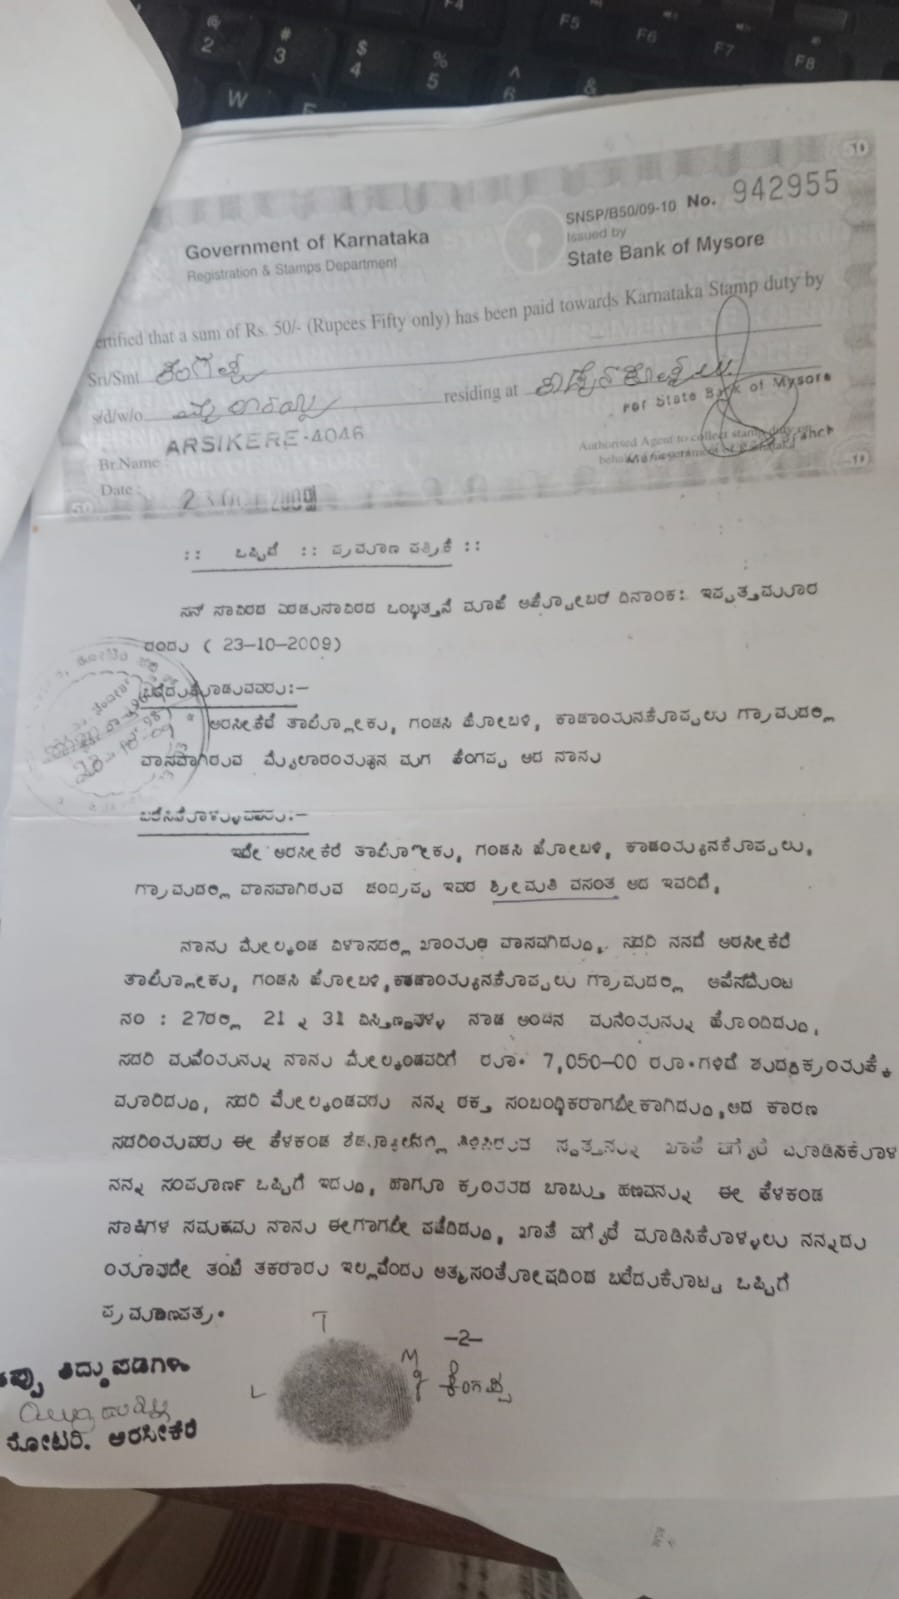 2 # 3 $ 4 % 5 ^ 6 & F4 F5 F6 F7 F8
W
SNSP/B50/09-10 No. 942955
Government of Karnataka
Issued by
Registration & Stamps Department
State Bank of Mysore
ertified that a sum of Rs. 50/- (Rupees Fifty only) has been paid towards Karnataka Stamp duty by
Sri/Smt ಕೆಂಗಪ್ಪ
s/d/w/o residing at
For State Bank of Mysore
ARSIKERE-4046
Authorised Agent to collect stamp duty on
Br.Name
Date : 23 OCT 2009
:: ಒಪ್ಪಿಗೆ :: ಪ್ರಮಾಣ ಪತ್ರಿಕೆ ::
ಸನ್ ಸಾವಿರದ ಎರಡುಸಾವಿರದ ಒಂಭತ್ತನೆ ಮಾಹೆ ಅಕ್ಟೋಬರ್ ದಿನಾಂಕ: ಇಪ್ಪತ್ತಮೂರ
ರಂದು ( 23-10-2009)
ಬರೆದುಕೊಡುವವರು:-
ಅರಸೀಕೆರೆ ತಾಲ್ಲೋಕು, ಗಂಡಸಿ ಹೋಬಳಿ, ಕಾಡಾಂಯನಕೊಪ್ಪಲು ಗ್ರಾಮದಲ್ಲಿ
ವಾಸವಾಗಿರುವ ಮೈಲಾರಯ್ಯನ ಮಗ ಕೆಂಗಪ್ಪ ಆದ ನಾನು
ಬರೆಸಿಕೊಳ್ಳುವವರು:-
ಇದೇ ಅರಸೀಕೆರೆ ತಾಲ್ಲೋಕು, ಗಂಡಸಿ ಹೋಬಳಿ, ಕಾಡಯ್ಯನಕೊಪ್ಪಲು,
ಗ್ರಾಮದಲ್ಲಿ ವಾಸವಾಗಿರುವ ಚಂದ್ರಪ್ಪ ಇವರ ಶ್ರೀಮತಿ ವಸಂತ ಆದ ಇವರಿಗೆ,
ನಾನು ಮೇಲ್ಕಂಡ ವಿಳಾಸದಲ್ಲಿ ಖಾಯಂ ವಾಸವಗಿದ್ದು, ಸದರಿ ನನಗೆ ಅರಸೀಕೆರೆ
ತಾಲ್ಲೋಕು, ಗಂಡಸಿ ಹೋಬಳಿ, ಕಾಡಾಂಯ್ಯನಕೊಪ್ಪಲು ಗ್ರಾಮದಲ್ಲಿ ಅಸೆಸಮೆಂಟ
ನಂ : 27ರಲ್ಲಿ 21 x 31 ವಿಸ್ತೀರ್ಣವುಳ್ಳ ನಾಡ ಹಂಚಿನ ಮನೆಯನ್ನು ಹೊಂದಿದ್ದು,
ಸದರಿ ಮನೆಯನ್ನು ನಾನು ಮೇಲ್ಕಂಡವರಿಗೆ ರೂ. 7,050-00 ರೂ.ಗಳಿಗೆ ಶುದ್ಧಕ್ರಯಕ್ಕೆ
ಮಾರಿದ್ದು, ಸದರಿ ಮೇಲ್ಕಂಡವರು ನನ್ನ ರಕ್ತ ಸಂಬಂಧಿಕರಾಗಬೇಕಾಗಿದ್ದು,ಆದ ಕಾರಣ
ಸದರಿಯವರು ಈ ಕೆಳಕಂಡ ಶೆಡ್ಯೂಲಿನಲ್ಲಿ ತಿಳಿಸಿರುವ ಸ್ವತ್ತನ್ನು ಖಾತೆ ವಗೈರೆ ಮಾಡಿಸಿಕೊಳ
ನನ್ನ ಸಂಪೂರ್ಣ ಒಪ್ಪಿಗೆ ಇದ್ದು, ಹಾಗೂ ಕ್ರಯದ ಬಾಬ್ತು ಹಣವನ್ನು ಈ ಕೆಳಕಂಡ
ಸಾಕ್ಷಿಗಳ ಸಮಕ್ಷಮ ನಾನು ಈಗಾಗಲೇ ಪಡೆದಿದ್ದು, ಖಾತೆ ವಗೈರೆ ಮಾಡಿಸಿಕೊಳ್ಳಲು ನನ್ನದು
ಯಾವುದೇ ತಂಟೆ ತಕರಾರು ಇಲ್ಲವೆಂದು ಆತ್ಮಸಂತೋಷದಿಂದ ಬರೆದುಕೊಟ್ಟ ಒಪ್ಪಿಗೆ
ಪ್ರಮಾಣಪತ್ರ.
-2-
ಕೆಂಗಪ್ಪ
ತಪ್ಪು ತಿದ್ದುಪಡಿಗಳು
ನೋಟರಿ. ಅರಸೀಕೆರೆ